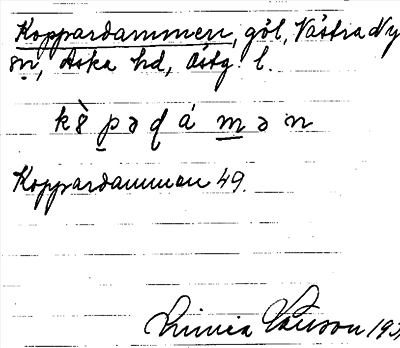 Koppardammen, göl, Västra Ny
sn, Aska hd, Östg. l.
kòpəɖámən
Koppardammen 49.
Linnea 193